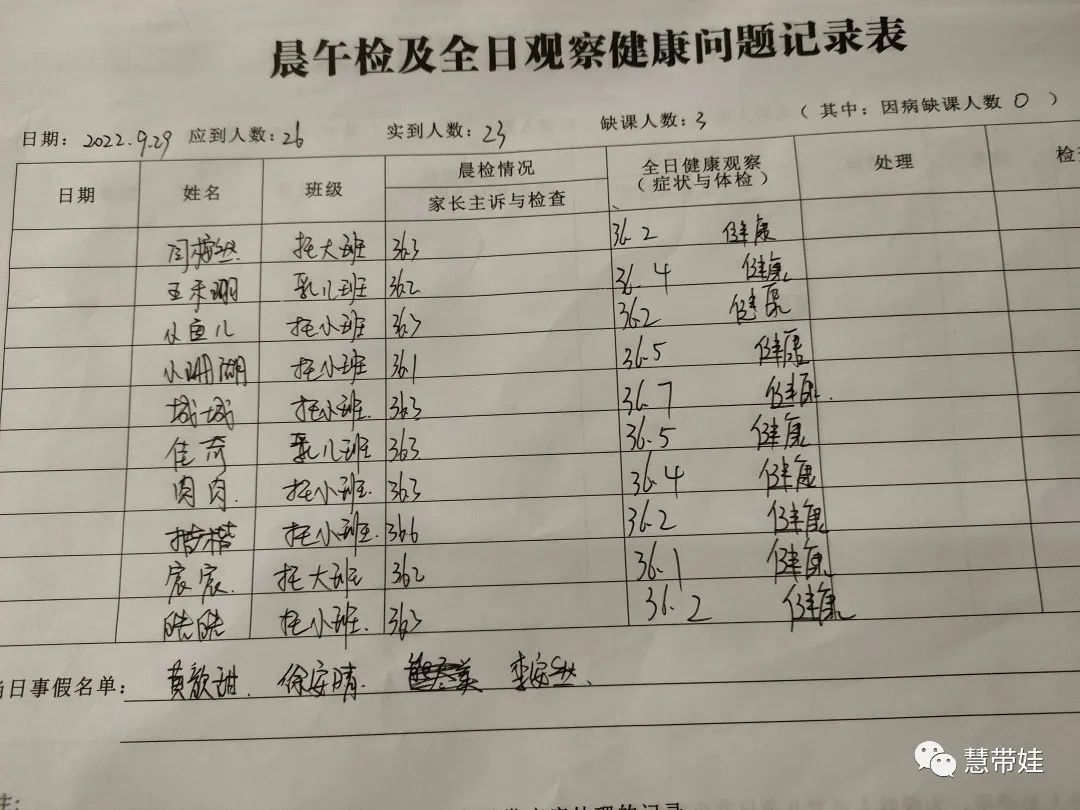 晨午检及全日观察健康问题记录表
日期: 2022.9.29 应到人数: 26 实到人数: 23 缺课人数: 3 (其中: 因病缺课人数 0 )
日期 姓名 班级 晨检情况 全日健康观察 处理
家长主诉与检查 (症状与体检)
托大班 36.3 36.2 健康
王禾珊 乳儿班 36.2 36.4 健康
小鱼儿 托小班 36.3 36.2 健康
小珊瑚 托小班 36.1 36.5 健康
城城 托小班. 36.3 36.7 健康.
佳奇 乳儿班 36.3 36.5 健康
肉肉. 托小班. 36.3 36.4 健康
楷楷 托小班. 36.6 36.2 健康
宸宸. 托大班 36.2 36.1 健康
皓皓 托小班. 36.3 36.2 健康
当日事假名单: 黄歆甜. 徐安晴. 李安
注:
慧带娃